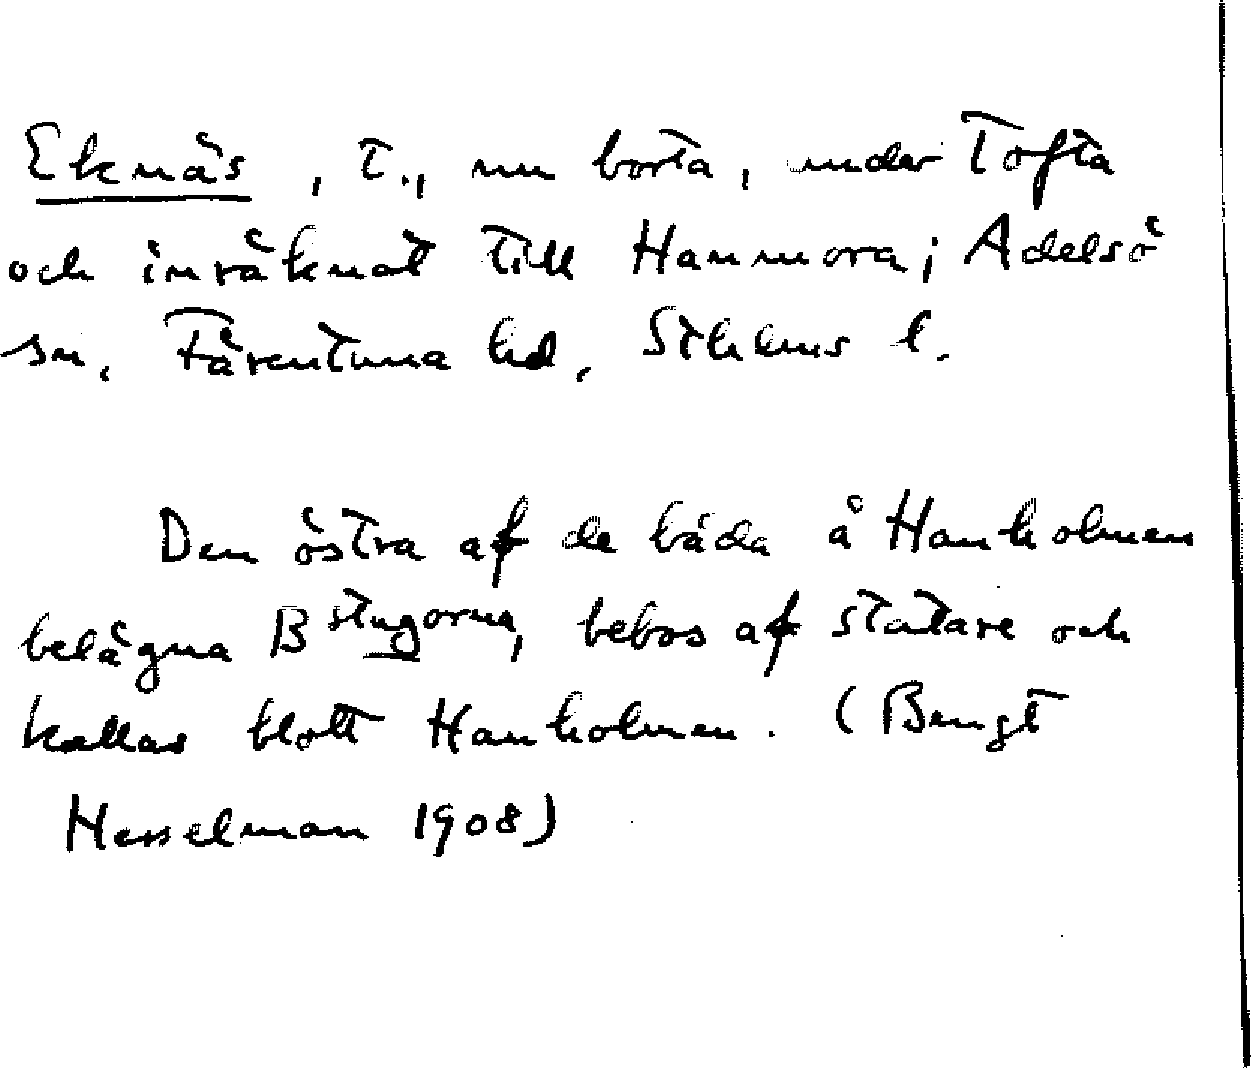 Eknäs, t., nu borta, under Tofta
och inräknat till Hanmora; Adelsö
sn, Färentuna hd, Sthlms l.
Den östra af de båda å Hanholmen
belägna Bstugorna, bebos af statare och
kallas blott Hanholmen. (Bengt
Hesselman 1908)